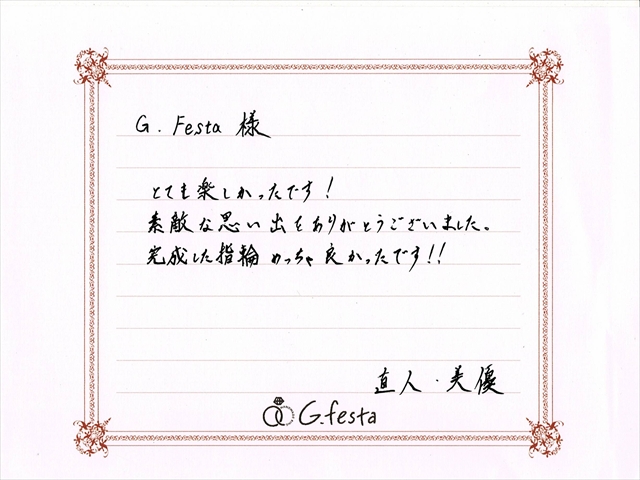 G. Festa 様
とても楽しかったです!
素敵な思い出をありがとうございました。
完成した指輪めっちゃ良かったです!!
直人・美優
G.festa